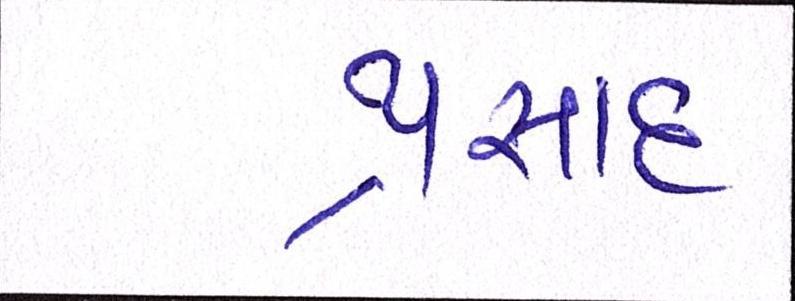 પ્રસાદ